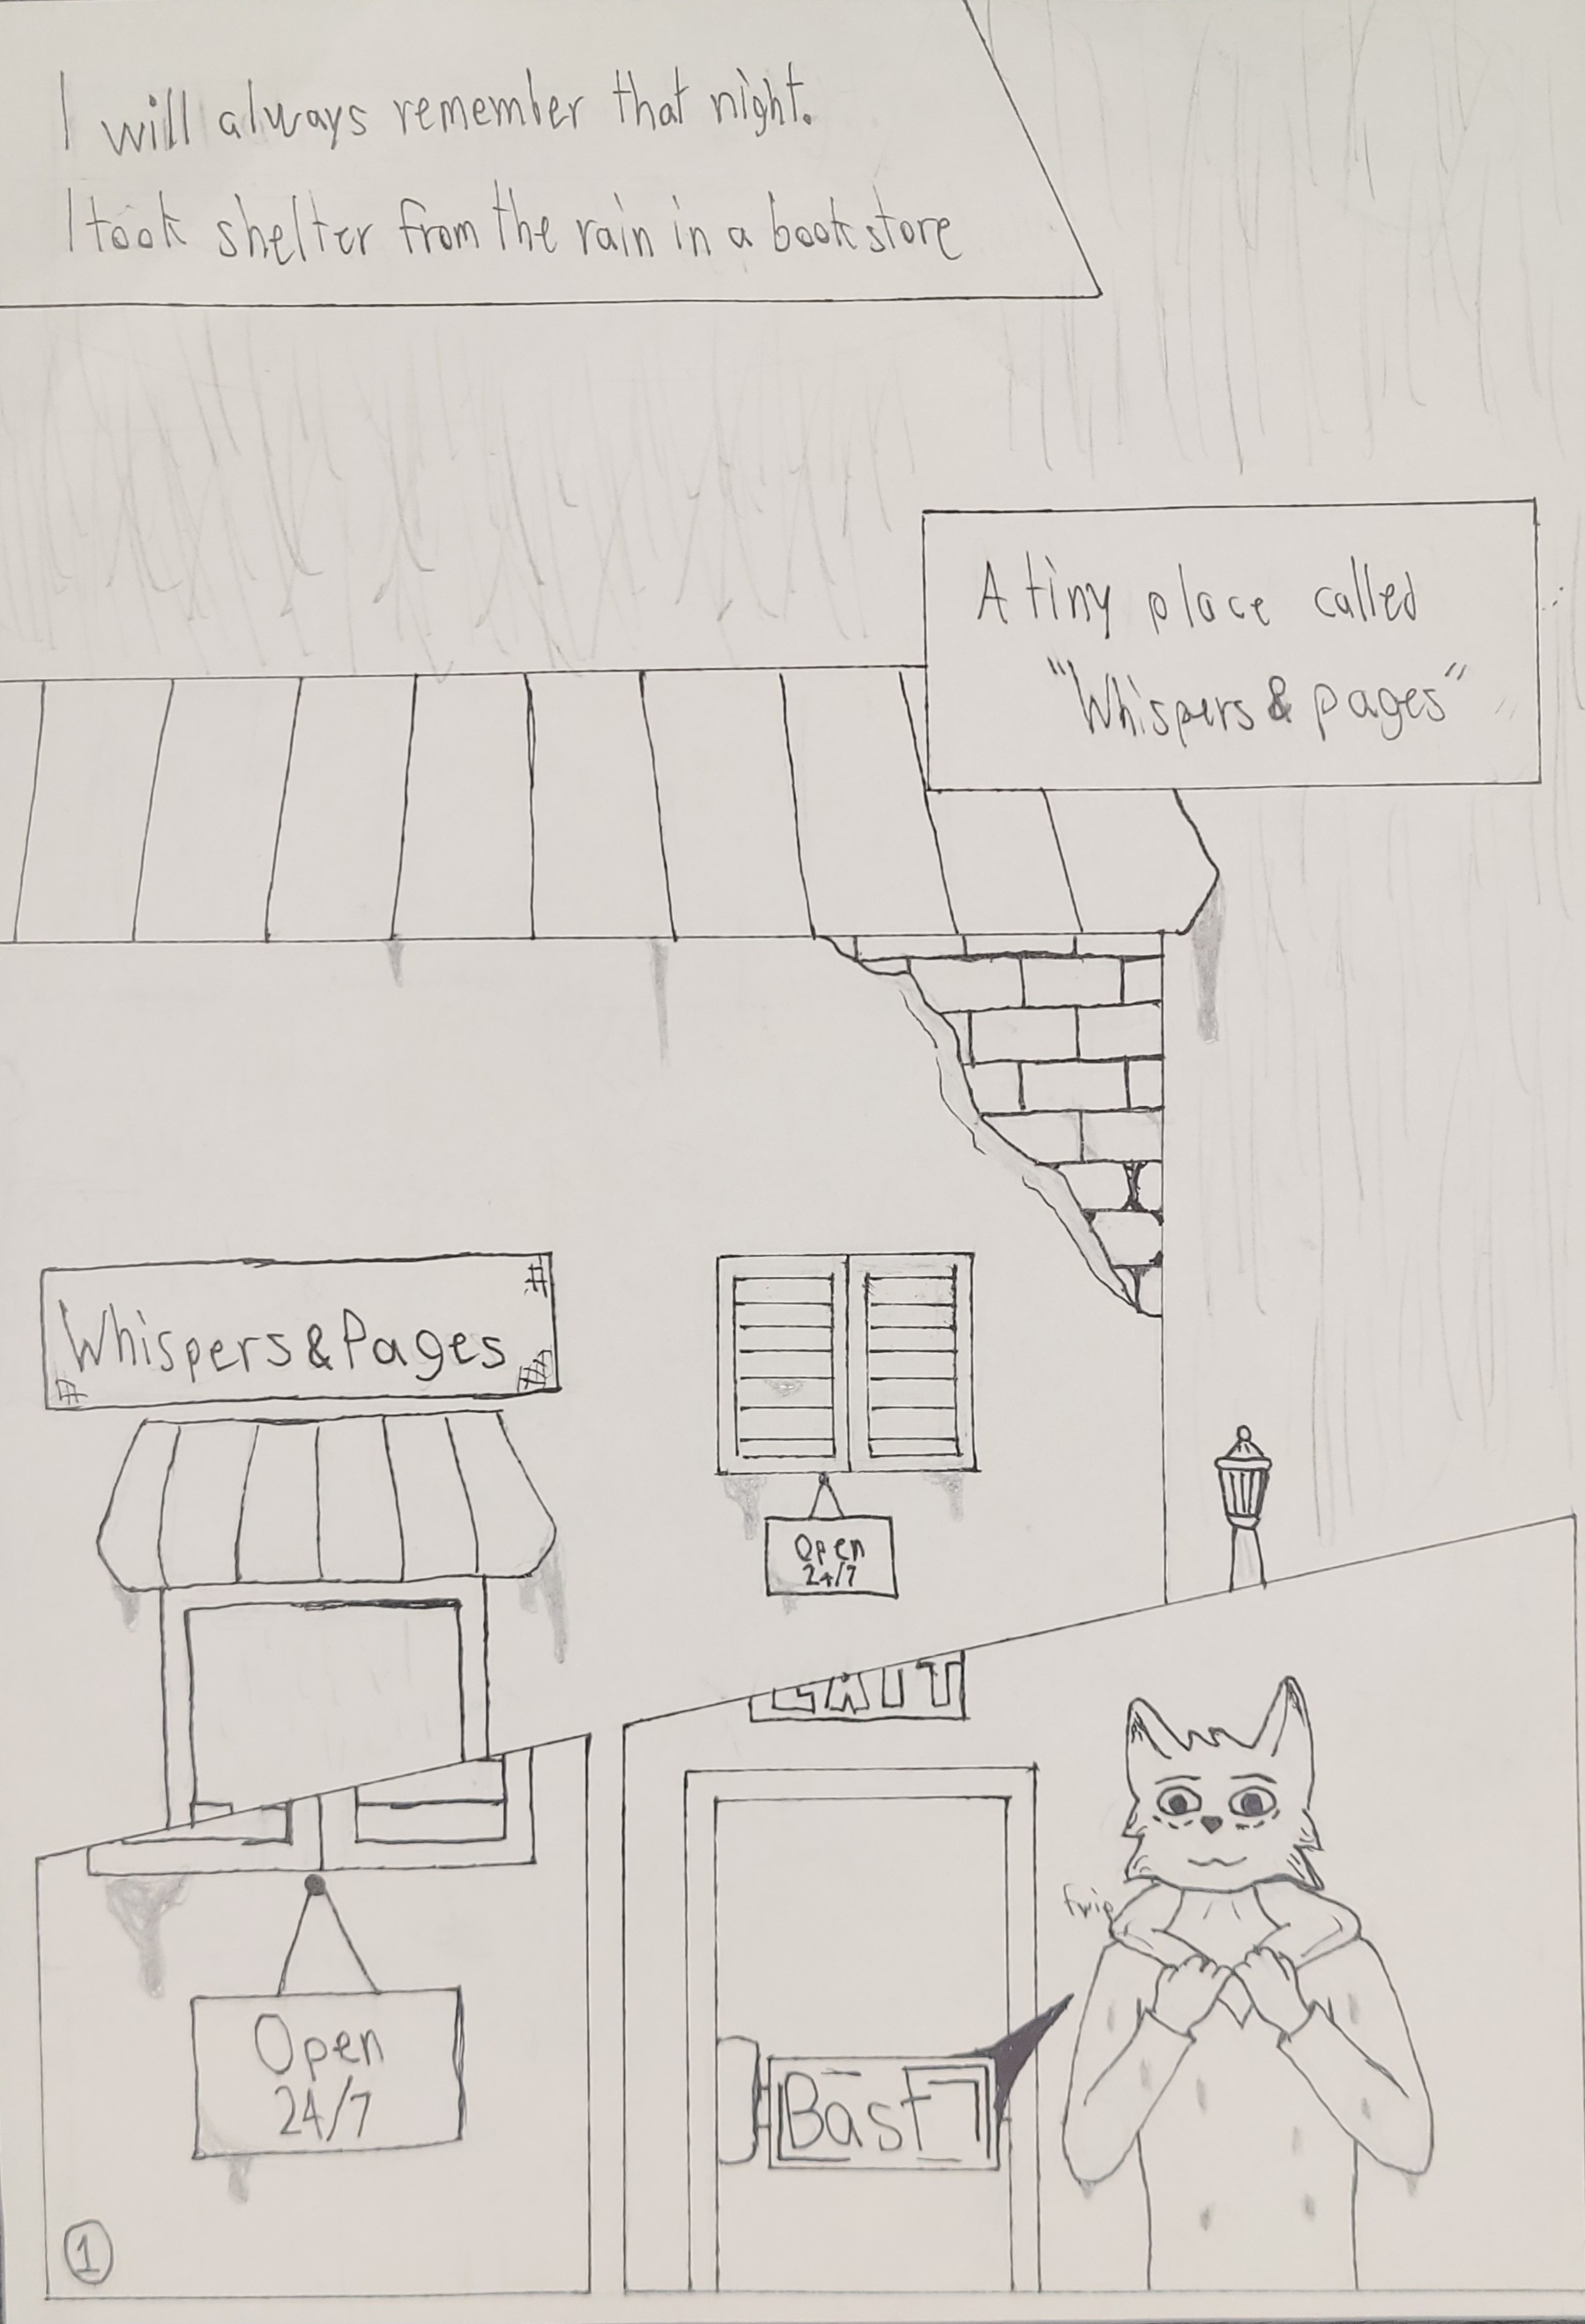 I will always remember that night.
I took shelter from the rain in a bookstore
A tiny place called
"Whispers & pages"
Whispers & Pages
Open
24/7
EXIT
Open
24/7
fwip
Bast
1